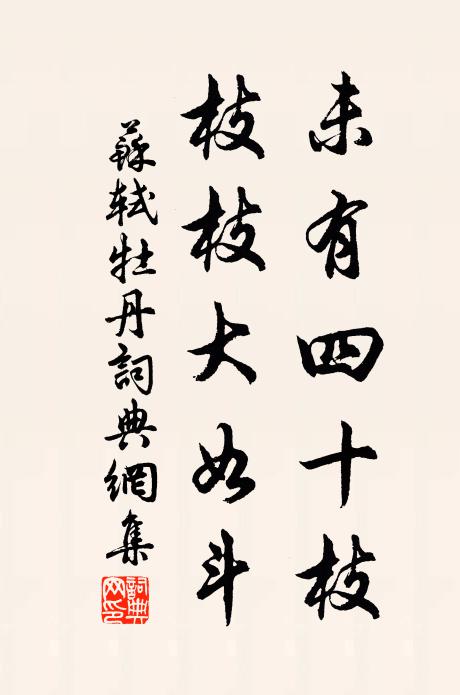 未有四十枝
枝枝大如斗
蘇軾牡丹詞典網集
詞典網印